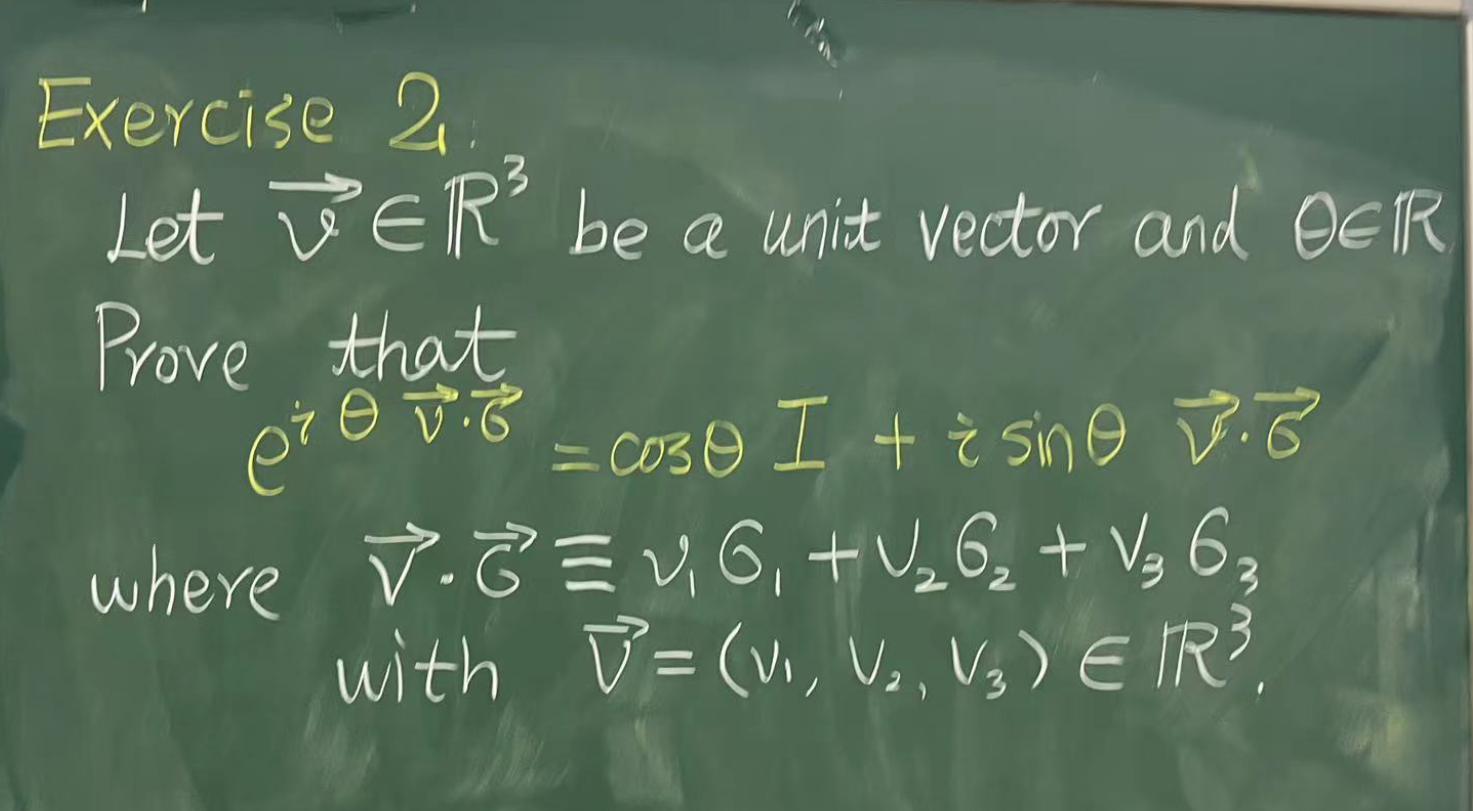 Exercise 2.
Let v⃗ ∈ ℝ³ be a unit vector and θ∈ℝ.
Prove that
e^{iθ v⃗·σ⃗} = cosθ I + i sinθ v⃗·σ⃗
where v⃗·σ⃗ ≡ v₁σ₁ + v₂σ₂ + v₃σ₃
with v⃗ = (v₁, v₂, v₃) ∈ ℝ³.